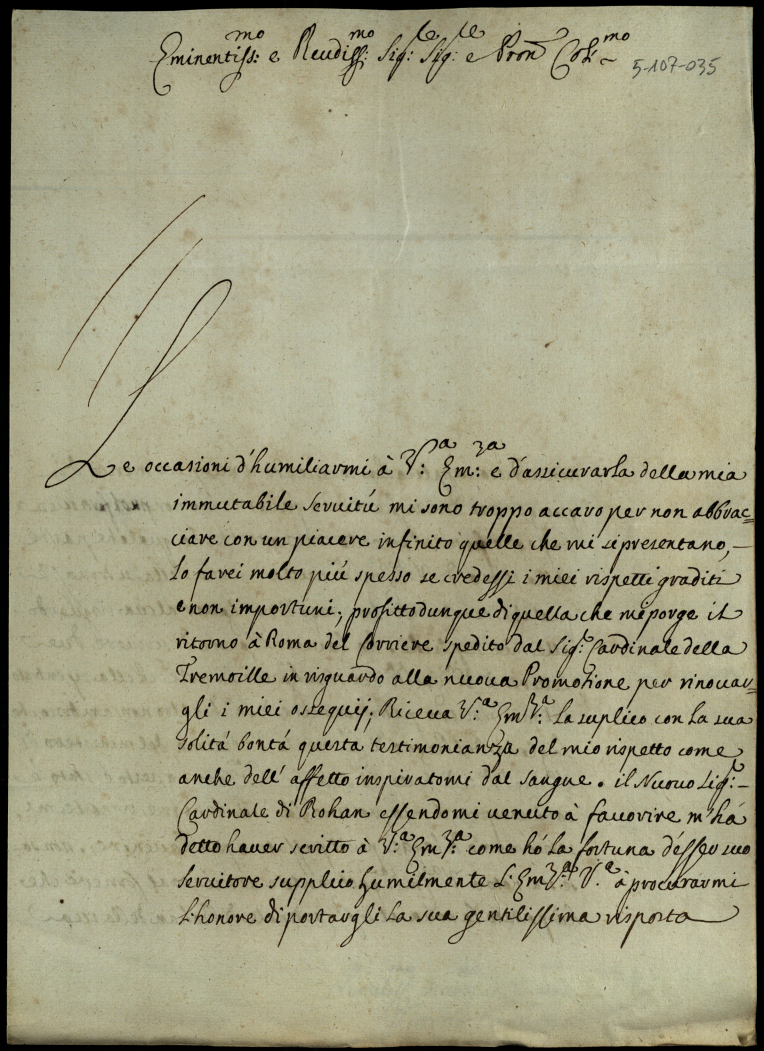 Eminentiss:mo e Reudiss:mo Sig:re Sig:re e Pron Col:mo
5-107-035
Le occasioni d'humiliarmi à V:a Em:za e d'assicurarla della mia
immutabile seruitú mi sono troppo accaro per non abbrac=
ciare con un piacere infinito quelle che mi si presentano,
lo farei molto piú spesso se credessi i miei rispetti graditi
e non importuni; profitto dunque di quella che mi porge il
ritorno à Roma del Corriere spedito dal Sig:r Cardinale della
Tremoille in risguardo alla nuoua Promotione per rinouar=
gli i miei ossequij; Riceua V:a Em:za la suplico con la sua
solitá bontá questa testimonianza del mio rispetto come
anche dell' affetto inspiratomi dal sangue. il Nuouo Sig:r
Cardinale di Rohan essendomi uenuto à fauorire m'há
detto hauer scritto à V:a Em:za come hó la fortuna d'esser suo
seruitore supplico humilmente L'Em:za V:a à procurarmi
l'honore di portargli la sua gentilissima risposta